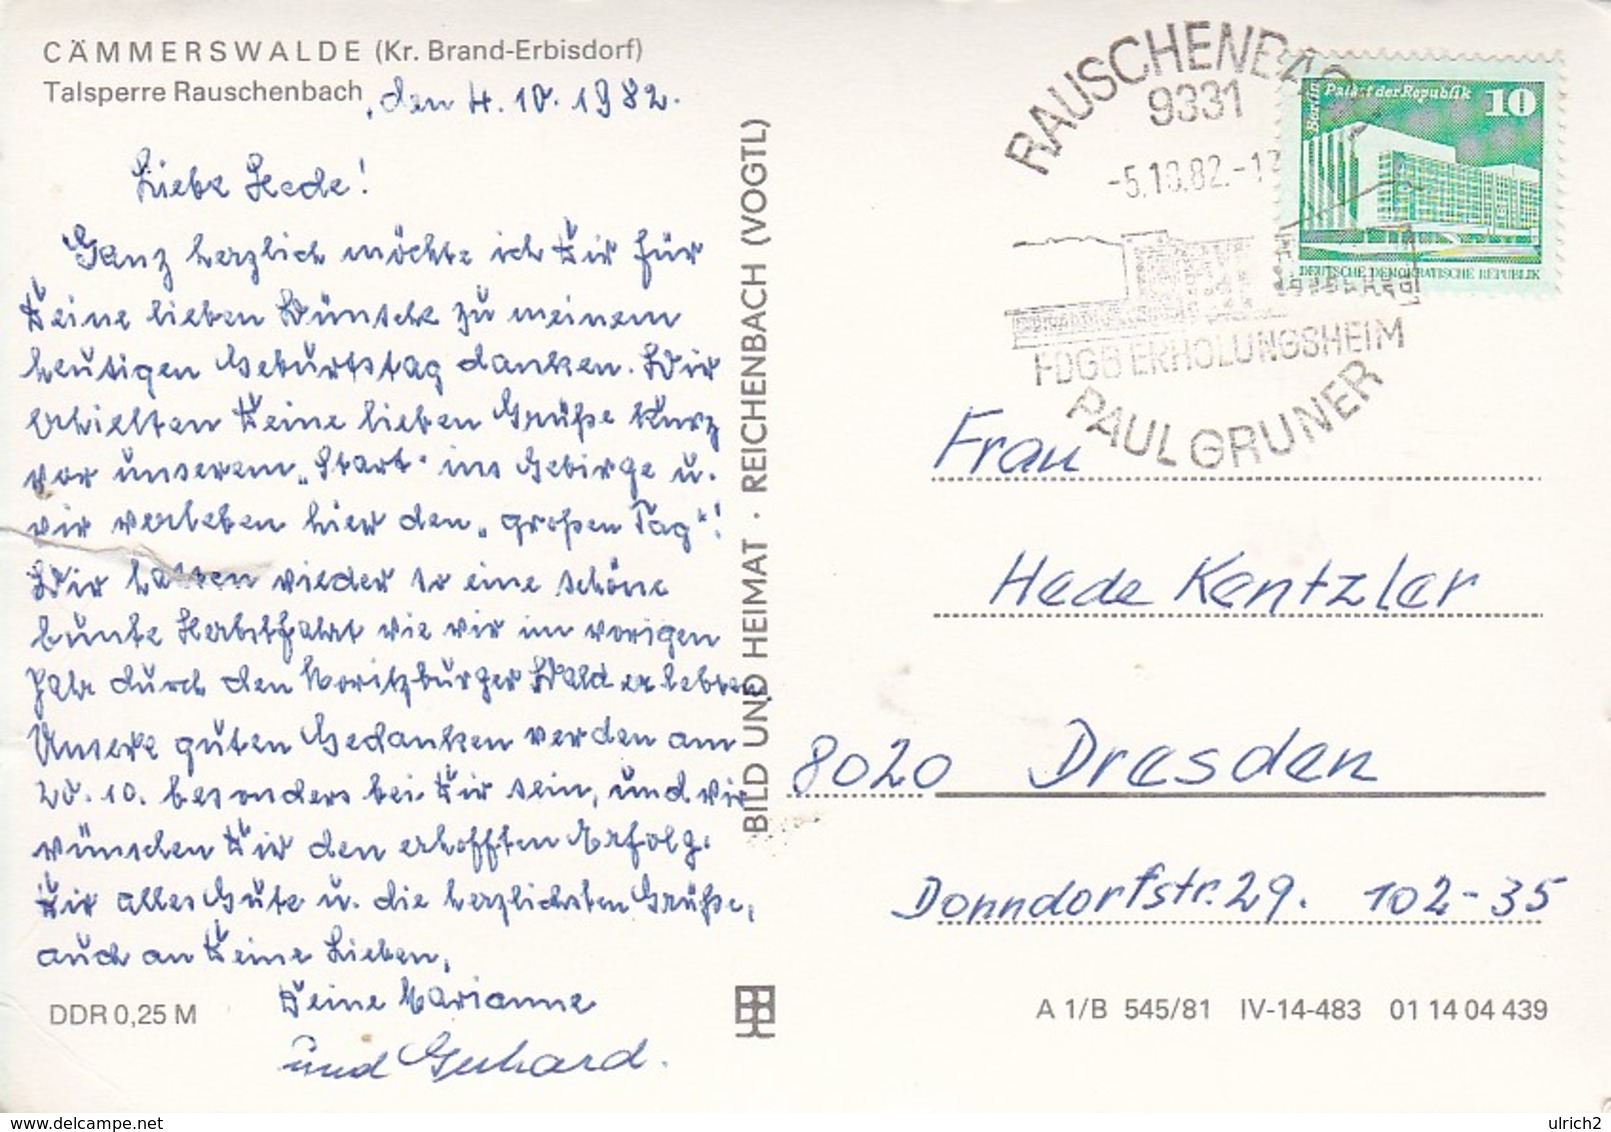 CÄMMERSWALDE (Kr. Brand-Erbisdorf)
Talsperre Rauschenbach, den 4.10.1982.
Liebe Hede!
Ganz herzlich möchte ich Dir für
Deine lieben Wünsche zu meinem
heutigen Geburtstag danken. Wir
erhielten Deine lieben Grüße kurz
vor unserem „Start“ ins Gebirge u.
wir verleben hier den „großen Tag“!
Wir hatten wieder so eine schöne
bunte Herbstfahrt wie wir im vorigen
Jahr durch den Moritzburger Wald erlebten.
Unsere guten Gedanken werden am
20.10. besonders bei Dir sein, und wir
wünschen Dir den erhofften Erfolg.
Dir alles Gute u. die herzlichsten Grüße,
auch an Deine Lieben,
Deine Marianne
und Gerhard.
DDR 0,25 M
BILD UND HEIMAT · REICHENBACH (VOGTL)
RAUSCHENBACH
9331
-5.10.82.-17
FDGB ERHOLUNGSHEIM
PAUL GRUNER
Berlin Palast der Republik 10
DEUTSCHE DEMOKRATISCHE REPUBLIK
Frau
Hede Kentzler
8020 Dresden
Donndorfstr. 29. 102-35
A 1/B 545/81 IV-14-483 01 14 04 439
ulrich2